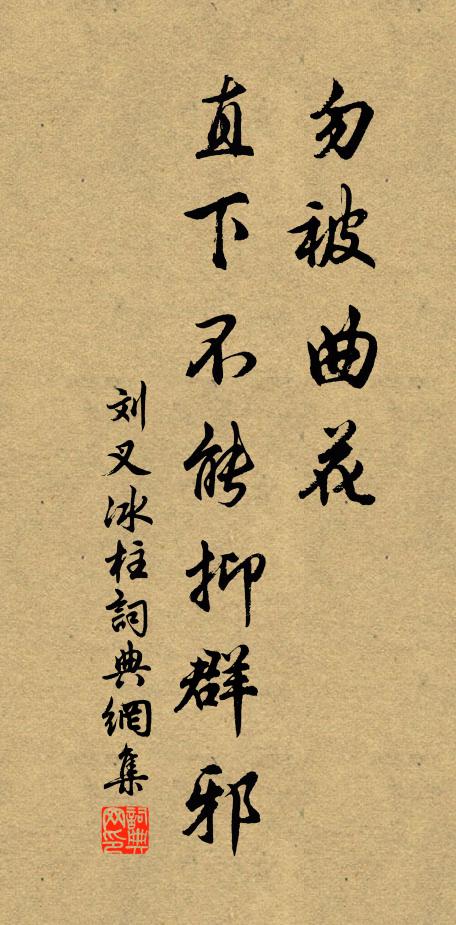 勿被曲花
直下不能抑群邪
刘叉冰柱詞典網集
詞典网印